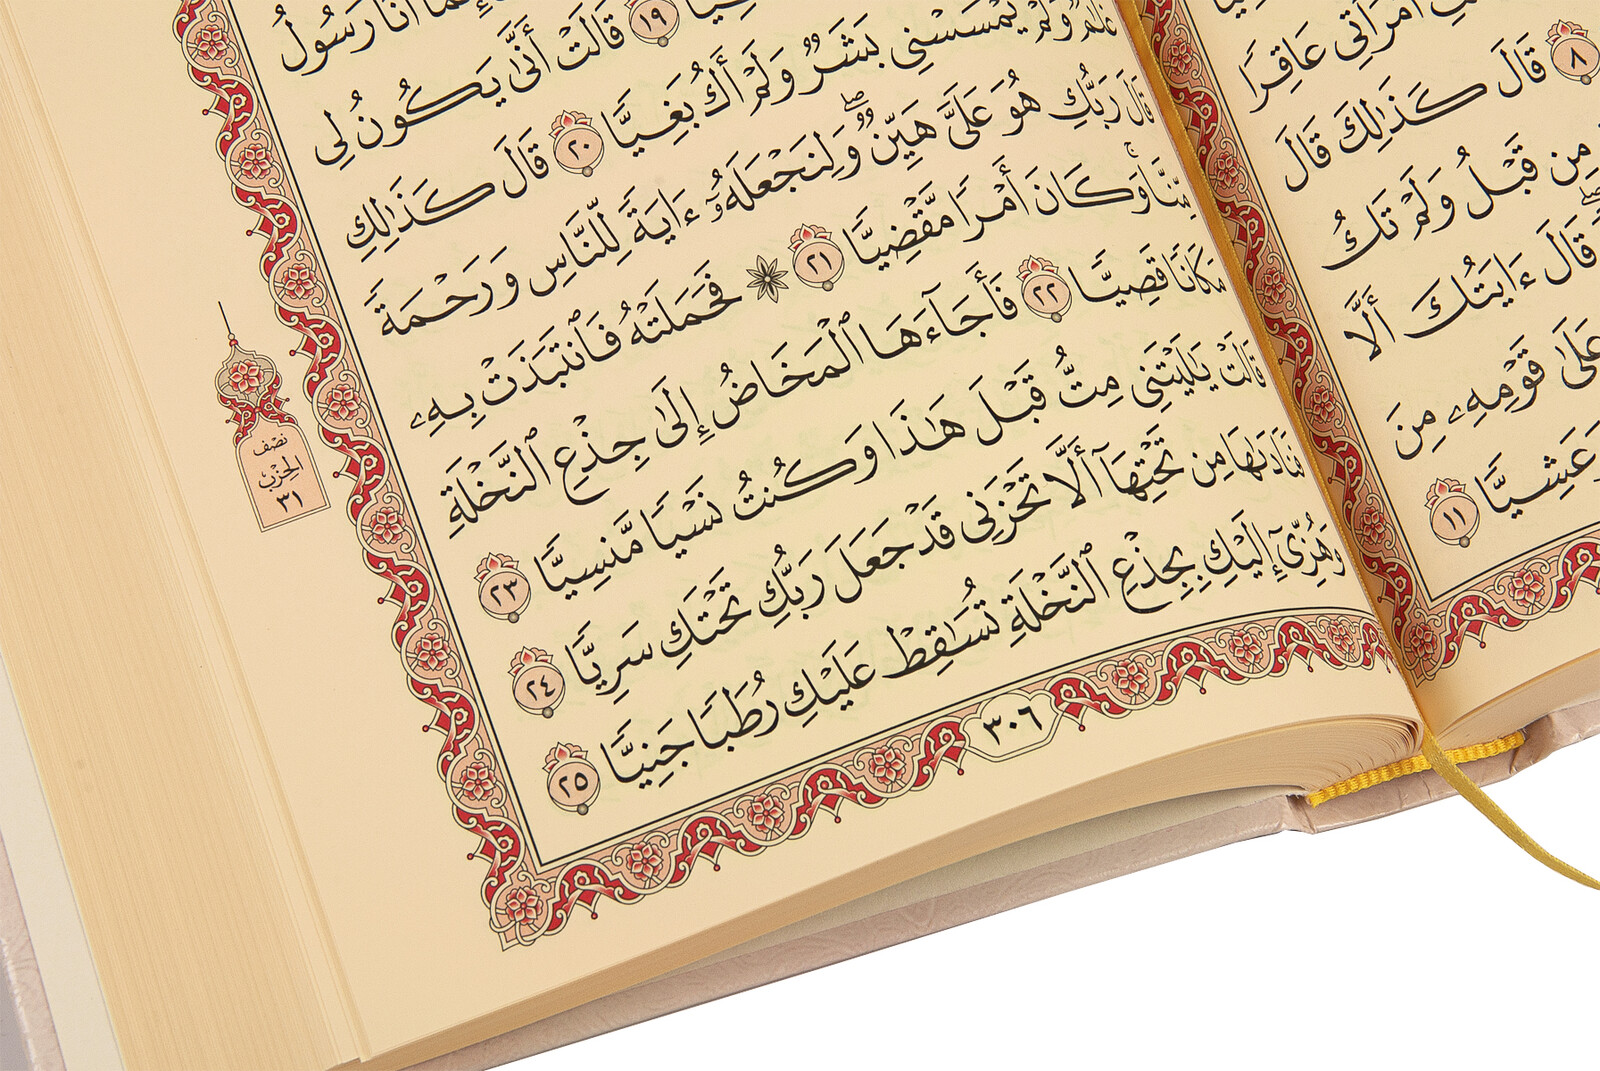 ٱمْرَأَتِى عَاقِرًا
٨ قَالَ كَذَٰلِكَ قَالَ
مِن قَبْلُ وَلَمْ تَكُ
قَالَ ءَايَتُكَ أَلَّا
عَلَىٰ قَوْمِهِۦ مِنَ
وَعَشِيًّا ١١
أَنَا۠ رَسُولُ
١٩ قَالَتْ أَنَّىٰ يَكُونُ لِى
غُلَٰمٌ وَلَمْ يَمْسَسْنِى بَشَرٌ وَلَمْ أَكُ بَغِيًّا ٢٠ قَالَ كَذَٰلِكِ
قَالَ رَبُّكِ هُوَ عَلَىَّ هَيِّنٌ ۖ وَلِنَجْعَلَهُۥٓ ءَايَةً لِّلنَّاسِ وَرَحْمَةً
مِّنَّا ۚ وَكَانَ أَمْرًا مَّقْضِيًّا ٢١ ۞ فَحَمَلَتْهُ فَٱنتَبَذَتْ بِهِۦ
مَكَانًا قَصِيًّا ٢٢ فَأَجَآءَهَا ٱلْمَخَاضُ إِلَىٰ جِذْعِ ٱلنَّخْلَةِ
قَالَتْ يَٰلَيْتَنِى مِتُّ قَبْلَ هَٰذَا وَكُنتُ نَسْيًا مَّنسِيًّا ٢٣
فَنَادَىٰهَا مِن تَحْتِهَآ أَلَّا تَحْزَنِى قَدْ جَعَلَ رَبُّكِ تَحْتَكِ سَرِيًّا ٢٤
وَهُزِّىٓ إِلَيْكِ بِجِذْعِ ٱلنَّخْلَةِ تُسَٰقِطْ عَلَيْكِ رُطَبًا جَنِيًّا ٢٥
نصف
الحزب
٣١
٣٠٦